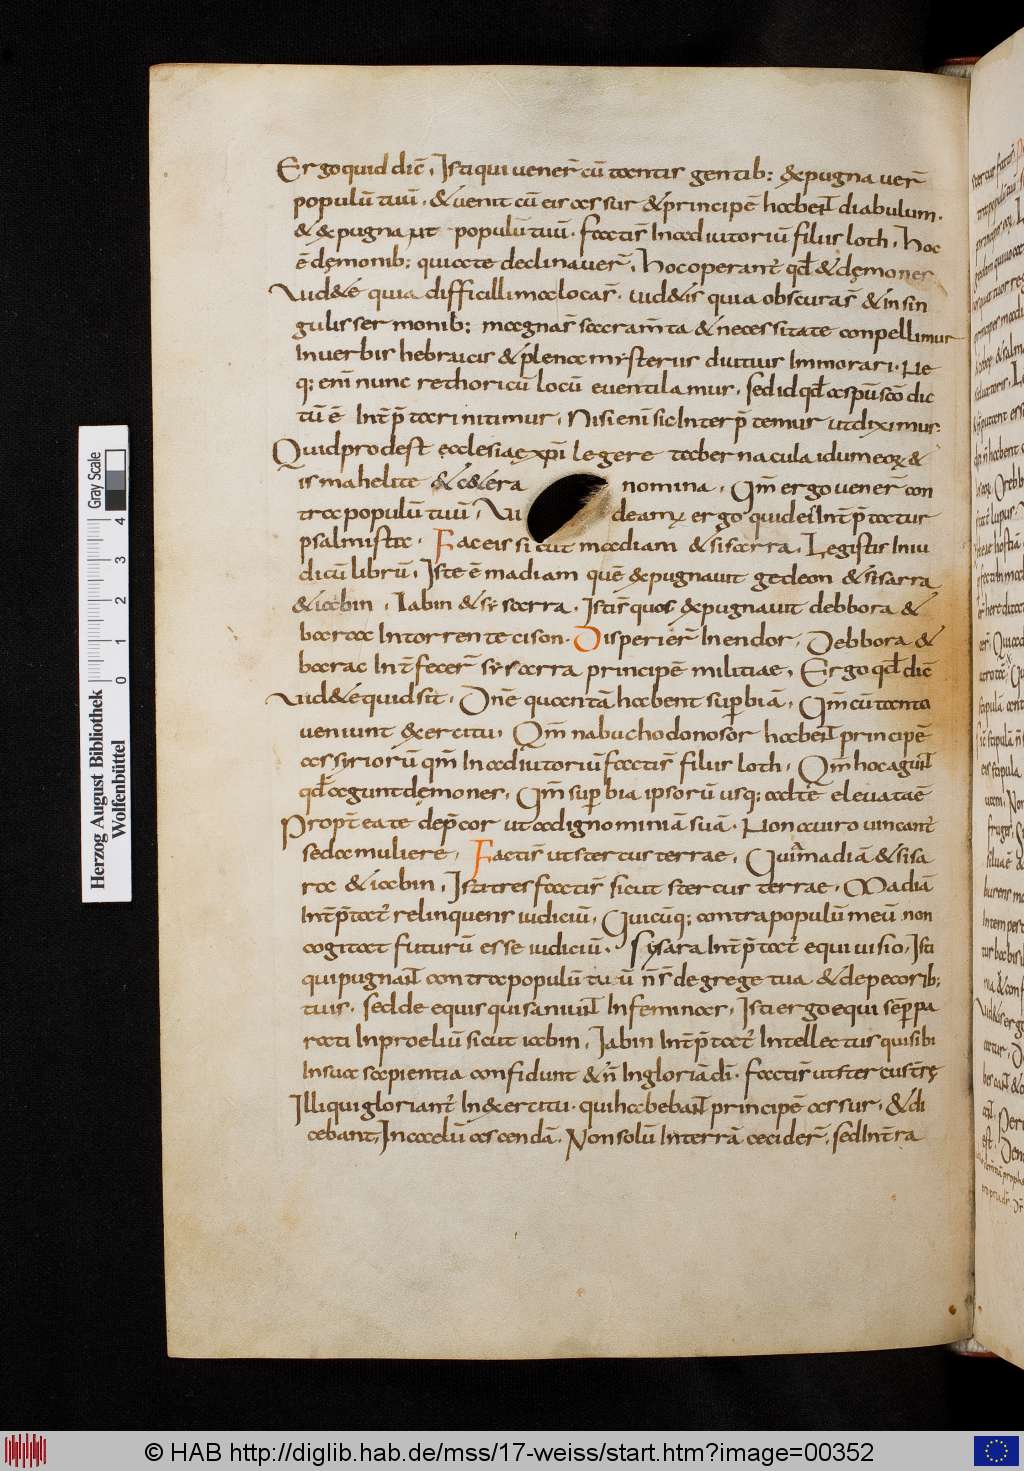 Ergo quid dic̄. Isti qui vener̄ cū tantis gentib; & expugnaver̄
populū tuū. & venit cū eis assur & principē habent diabulum.
& expugnant populū tuū. facti s̄ In adiutoriū filiis loth. hoc
ē dęmonib; qui a te declinaver̄. hoc operant̄ qđ & dęmones
Vid&e quia difficillima loca s̄. vid&is quia obscura s̄ & in sin
gulis sermonib; magna s̄ sacram̄ta & necessitate conpellimur
In verbis hebraicis & plena mysteriis diutius Immorari. Ne
q; eni nunc rethoricū locū eventilamur. sed id qđ a sp̄u sc̄o dic
tū ē Int̄p̄tari nitimur. Nisi enī sic Interp̄temur ut diximus.
Quid prodest ecclesiae xp̄i legere tabernacula idumeoꝝ &
ismahelite & c&era nomina. Qm̄ ergo vener̄ con
tra populū tuū. Vi deamꝰ ergo quid ei Int̄p̄tatur
psalmista. Fac eis sicut madiam & sisarra. Legistis In iu
dicū librū. Iste ē madiam quē expugnavit gedeon & sisarra
& iabin. Iabin & sysarra. Isti s̄ quos expugnavit debbora &
barac In torrente cison. Disperier̄ In endor. Debbora &
barac Int̄fecer̄ sysarra principē militiae. Ergo qđ dic̄
vid&e quid sit. Om̄e quanta habent sup̄biā. Qm̄ cū tanto
veniunt exercitu. Qm̄ nabuchodonosor habent principē
assyriorū qm̄ In adiutoriū facti s̄ filiis loth. Qm̄ hoc agunt
qđ agunt dęmones. Qm̄ sup̄bia ipsorū usq; ad te elevata ē
Propt̄ea te dep̄cor ut ad ignominiā suā. Non a viro vincant̄
sed a muliere. Facti s̄ ut stercus terrae. Qui s̄ madiā & sisa
ra & iabin. Isti tres facti s̄ sicut stercus terrae. Madiā
Int̄p̄tat̄ relinquens iudiciū. Quicūq; contra populū meū non
cogitat futurū esse iudiciū. Sysara Int̄p̄tat̄ equi visio. Isti
qui pugnant contra populū tuū n̄ s̄ de grege tua & de pecorib;
tuis. sed de equis qui saniunt In feminas. Isti ergo equi semp̄ pa
rati In proeliū sicut iabin. Iabin Int̄p̄tat̄ Intellectus qui sibi
In sua sapientia confidunt & n̄ In gloriā dī. facti s̄ ut stercus t̄rę
Illi qui gloriant̄ In exercitu. qui habebant principē assur. & di
cebant. In caelū ascendā. Non solū In terrā cecider̄. sed Int̄ra
Gray Scale
0 1 2 3 4
Herzog August Bibliothek
Wolfenbüttel
© HAB http://diglib.hab.de/mss/17-weiss/start.htm?image=00352